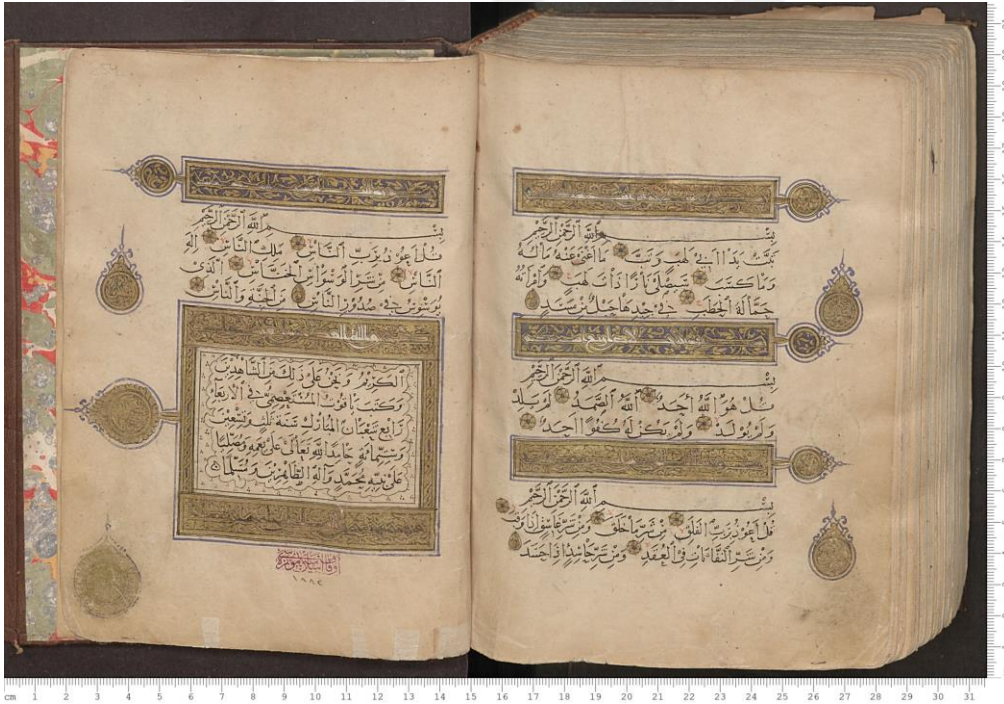 بسم الله الرحمن الرحيم
تبت يدا ابي لهب وتب ما اغنى عنه ماله
وما كسب سيصلى نارا ذات لهب وامراته
حمالة الحطب في جيدها حبل من مسد
بسم الله الرحمن الرحيم
قل هو الله احد الله الصمد لم يلد
ولم يولد ولم يكن له كفوا احد
بسم الله الرحمن الرحيم
قل اعوذ برب الفلق من شر ما خلق ومن شر غاسق اذا وقب
ومن شر النفاثات في العقد ومن شر حاسد اذا حسد
بسم الله الرحمن الرحيم
قل اعوذ برب الناس ملك الناس اله
الناس من شر الوسواس الخناس الذي
يوسوس في صدور الناس من الجنة والناس
الكريم ونحن على ذلك من الشاهدين
وكتب ياقوت المستعصمي في الاربعاء
رابع شعبان المبارك سنة ثلث وتسعين
وستمائة حامدا لله تعالى على نعمه ومصليا
على نبيه محمد واله الطاهرين ومسلما
١٨٨٢
cm 1 2 3 4 5 6 7 8 9 10 11 12 13 14 15 16 17 18 19 20 21 22 23 24 25 26 27 28 29 30 31